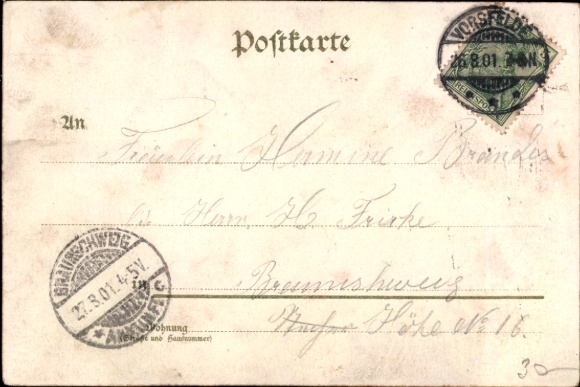 Postkarte
VORSFELDE
26.8.01. 7-8N.
An
Fräulein Hermine Brandes
Herrn H. Fricke
BRAUNSCHWEIG
27.8.01. 4-5V.
ANKUNFT
in
Braunschweig
Wohnung
(Straße und Hausnummer)
Höhe No 16.
30